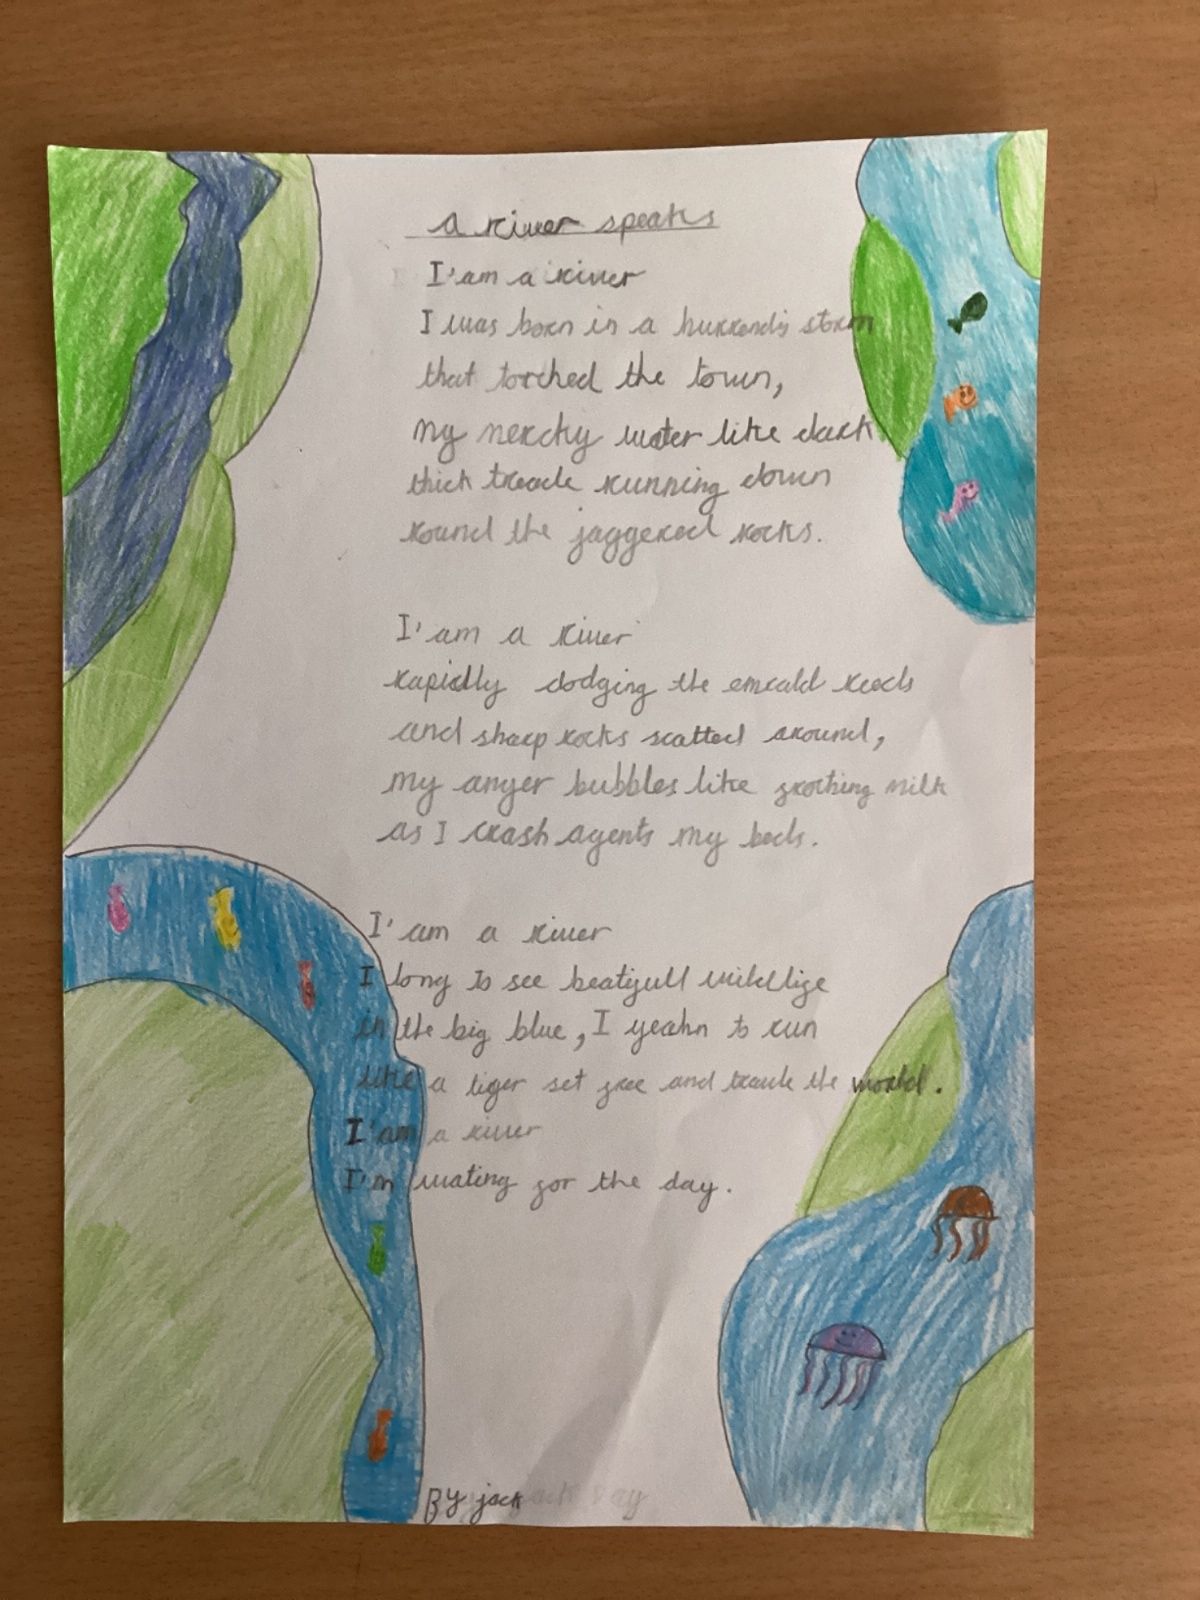 a river speaks
I'am a river
I was born in a hurrendis storm
that torched the town,
my mercky water like dark
thick treacle running down
round the jaggered rocks.
I'am a river
rapidly dodging the emrald reeds
and sharp rocks scatted around,
my anger bubbles like frothing milk
as I crash agents my beds.
I'am a river
I long to see beatifull wildlife
in the big blue, I yeahn to run
like a tiger set free and the world.
I'am a river
I'm wating for the day.
By jack